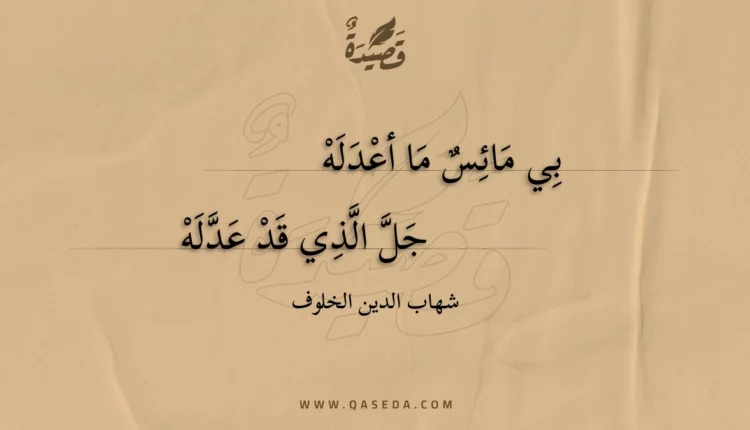 قَصِيدَةٌ
بِي مَائِسٌ مَا أعْدَلَهْ
جَلَّ الَّذِي قَدْ عَدَّلَهْ
شهاب الدين الخلوف
WWW.QASEDA.COM